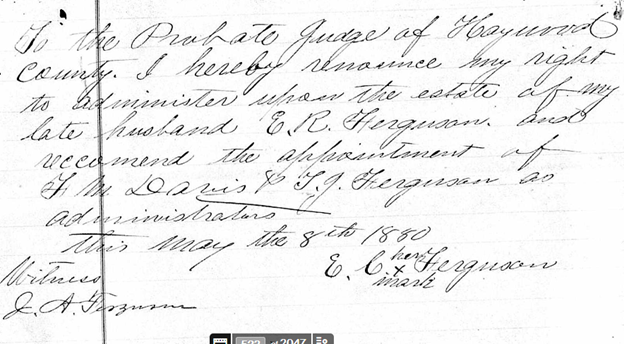 To the Probate Judge of Haywood
County. I hereby renounce my right
to administer upon the estate of my
late husband E. R. Ferguson. and
reccomend the appointment of
F M Davis & T. J. Ferguson as
administrators
this May the 8th 1880
E. C. her x mark Ferguson
Witness
J. A. Ferguson
522 of 2047